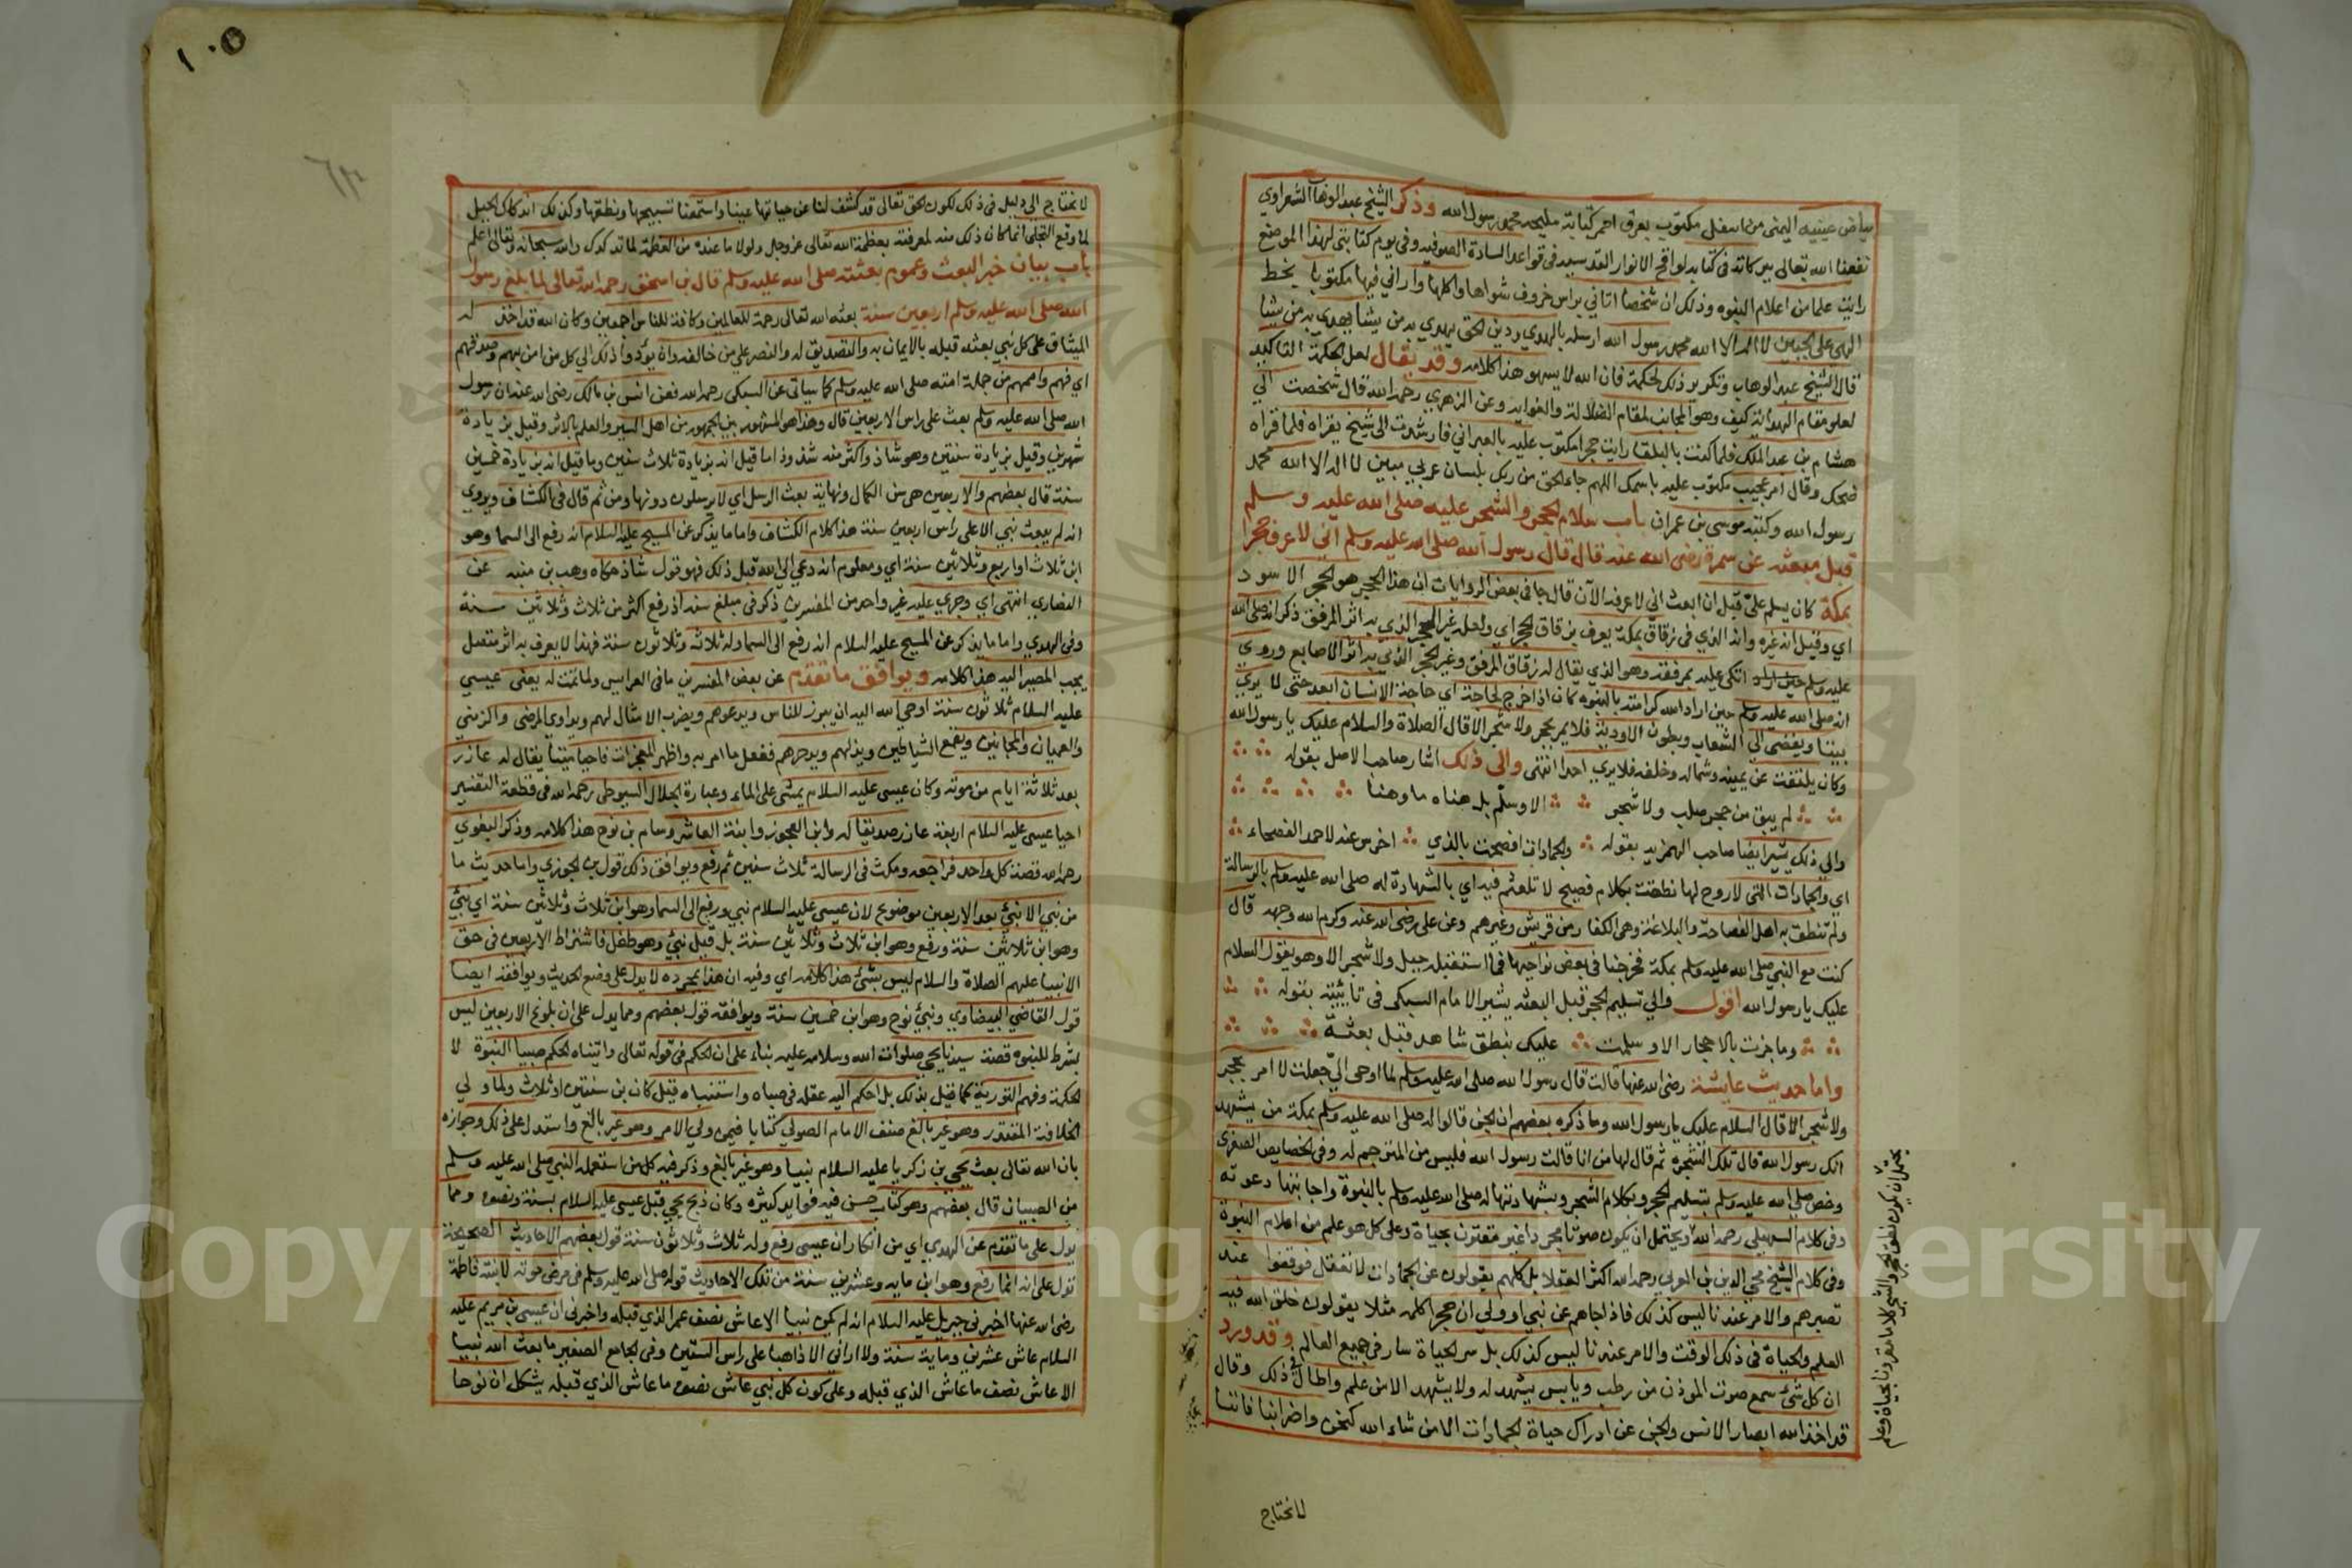 بياض عينيه اليمنى من اسفل مكتوب بعرق احمر كتابة مليحه محمد رسول الله وذكر الشيخ عبد الوهاب الشعراوي
نفعنا الله تعالى ببركاته في كتابه لواقح الانوار القدسيه في قواعد السادة الصوفيه وفي يوم كتابتي لهذا الموضع
رايت علما من اعلام النبوه وذلك ان شخصا اتاني براس خروف شواها واكلها واراني فيها مكتوبا بخط
الهي على الجبين لا اله الا الله محمد رسول الله ارسله بالهدي ودين الحق يهدي به من يشا يهدي به من يشا
قال الشيخ عبد الوهاب وتكرير ذلك لحكمة فان الله لا يسهو هذا كلامه وقد يقال لعل الحكمة التاكيد
لعلو مقام الهداية كيف وهو المجانب لمقام الضلالة والغوايه وعن الزهري رحمه الله قال شخصت الي
هشام بن عبد الملك فلما كنت بالبلقا رايت حجرا مكتوب عليه بالعبراني فارشدت الى شيخ يقراه فلما قراه
ضحك وقال امر عجيب مكتوب عليه باسمك اللهم جا الحق من ربك بلسان عربي مبين لا اله الا الله محمد
رسول الله وكتبه موسى بن عمران باب سلام الحجر والشجر عليه صلى الله عليه وسلم
قبل مبعثه عن سمرة رضي الله عنه قال قال رسول الله صلى الله عليه وسلم اني لاعرف حجرا
بمكة كان يسلم علي قبل ان ابعث اني لاعرفه الآن قال جا في بعض الروايات ان هذا الحجر هو الحجر الاسود
اي وقيل انه غره وانه الذي في زقاق بمكة يعرف بزقاق الحجر اي ولعله غير الحجر الذي به اثر المرفق ذكر انه صلى الله
عليه وسلم اتكى عليه بمرفقه وهو الذي يقال له زقاق المرفق وغير الحجر الذي به اثر الاصابع وروي
انه صلى الله عليه وسلم حين اراد الله كرامته بالنبوه كان اذا خرج لحاجة اي حاجة الانسان ابعد حتى لا يري
بيتا ويفضى الي الشعاب وبطون الاودية فلا يمر بحجر ولا شجر الا قال الصلاة والسلام عليك يا رسول الله
وكان يلتفت عن يمينه وشماله وخلفه فلا يري احدا انتهى والى ذلك اشار صاحب الاصل بقوله
لم يبق من حجر صلب ولا شجر الا وسلم بل هناه ما وهنا
والي ذلك يشير ايضا صاحب الهمزيه بقوله والجمادات افصحت بالذي اخرس عنه لاحمد الفصحاء
اي والجمادات التي لا روح لها نطقت بكلام فصيح لا تلعثم فيه اي بالشهادة له صلى الله عليه وسلم بالرسالة
ولم تنطق به اهل الفصاحة والبلاغة وهى الكفار من قريش وغيرهم وعن علي رضي الله عنه وكرم الله وجهه قال
كنت مع النبي صلى الله عليه وسلم بمكة فخرجنا في بعض نواحيها فما استقبله جبل ولا شجر الا وهو يقول السلام
عليك يا رسول الله اقول والي تسليم الحجر قبل البعثه يشير الامام السبكي في تائيته بقوله
وما جزت بالاحجار الا وسلمت عليك بنطق شاهد قبل بعثة
واما حديث عايشة رضي الله عنها قالت قال رسول الله صلى الله عليه وسلم لما اوحى الي جعلت لا امر بحجر
ولا شجر الا قال السلام عليك يا رسول الله وما ذكره بعضهم ان الجن قالوا له صلى الله عليه وسلم بمكة من يشهد
انك رسول الله قال تلك الشجره ثم قال لها من انا قالت رسول الله فليس من المترجم له وفي الخصايص الصغرى
وخص صلى الله عليه وسلم بتسليم الحجر وبكلام الشجر وبشهادتها له صلى الله عليه وسلم بالنبوة واجابتها دعوته
وفي كلام السهيلي رحمه الله ويحتمل ان يكون صوتا مجردا غير مقترن بحياة وعلى كل هو علم من اعلام النبوة
وفي كلام الشيخ محي الدين بن العربي رحمه الله اكثر العقلا بل كلهم يقولون عن الجمادات لا تعقل فوقفوا عند
بصرهم والامر عندنا ليس كذلك فاذا جاهم عن نبي او ولي ان حجرا كلمه مثلا يقولون خلق الله فيه
العلم والحياة في ذلك الوقت والامر عندنا ليس كذلك بل سر الحياة سار في جميع العالم وقد ورد
ان كل شئ سمع صوت الموذن من رطب ويابس يشهد له ولا يشهد الا من علم واطال في ذلك وقال
قد اخذ الله ابصار الانس والجن عن ادراك حياة الجمادات الا من شاء الله كنحن واضرابنا فاننا
يحتمل ان يكون نطق الحجر والشجر كلاما مقرونا بحياة وعلم
لا نحتاج
١٠٥
لا نحتاج الي دليل في ذلك لكون الحق تعالى قد كشف لنا عن حياتها عينا واستمعنا تسبيحها ونطقها وكذلك اندكاك الجبل
لما وقع التجلي انما كان ذلك منه لمعرفته بعظمة الله تعالى عز وجل ولولا ما عنده من العظمة لما تدكدك والله سبحانه وتعالى اعلم
باب بيان خبر البعث وعموم بعثته صلى الله عليه وسلم قال بن اسحق رحمه الله تعالى لما بلغ رسول
الله صلى الله عليه وسلم اربعين سنة بعثه الله تعالى رحمة للعالمين وكافة للناس اجمعين وكان الله قد اخذ له
الميثاق على كل نبي بعثه قبله بالايمان به والتصديق له والنصر على من خالفه وان يؤدوا ذلك الي كل من امن بهم وصدقهم
اي فهم واممهم من جملة امته صلى الله عليه وسلم كما سياتي عن السبكي رحمه الله فعن انس بن مالك رضي الله عنه ان رسول
الله صلى الله عليه وسلم بعث على راس الاربعين قال وهذا هو المشهور بين الجمهور من اهل السير والعلم بالاثر وقيل بزيادة
شهرين وقيل بزيادة سنتين وهو شاذ واكثر منه شذوذا ما قيل انه بزيادة ثلاث سنين وما قيل انه بزيادة خمسين
سنة قال بعضهم والاربعين هى سن الكمال ونهاية بعث الرسل اي لا يرسلون دونها ومن ثم قال في الكشاف ويروي
انه لم يبعث نبي الا على راس اربعين سنة هذا كلام الكشاف واما ما يذكر عن المسيح عليه السلام انه رفع الى السما وهو
ابن ثلاث او اربع وثلاثين سنة اي ومعلوم انه دعي الي الله قبل ذلك فهو قول شاذ حكاه وهب بن منبه عن
النصاري انتهى اي وجري عليه غير واحد من المفسرين ذكر في مبلغ سنه اذ رفع اكثر من ثلاث وثلاثين سنة
وفي الهدي واما ما يذكر عن المسيح عليه السلام انه رفع الى السما وله ثلاثه وثلاثون سنة فهذا لا يعرف به اثر متصل
يجب المصير اليه هذا كلامه ويوافق ما تقدم عن بعض المفسرين ما في العرايس ولما تمت له يعنى عيسى
عليه السلام ثلاثون سنة اوحى الله اليه ان يبرز للناس ويدعوهم ويضرب الامثال لهم ويداوي المرضى والزمني
والعميان والمجانين ويقمع الشياطين ويذلهم ويدحرهم ففعل ما امر به واظهر المعجزات فاحيا ميتا يقال له عازر
بعد ثلاثة ايام من موته وكان عيسى عليه السلام يمشى على الماء وعبارة الجلال السيوطي رحمه الله في قطعة التفسير
احيا عيسى عليه السلام اربعة عازر صديقا له وابن العجوز وابنة العاشر وسام بن نوح هذا كلامه وذكر البغوي
رحمه الله قصة كل واحد فراجعه ومكث في الرسالة ثلاث سنين ثم رفع ويوافق ذلك قول بن الجوزي واما حديث ما
من نبي الا نبئ بعد الاربعين موضوع لان عيسى عليه السلام نبي ورفع الى السما وهو ابن ثلاث وثلاثين سنة اي نبئ
وهو ابن ثلاثين سنة ورفع وهو ابن ثلاث وثلاثين سنة بل قيل نبئ وهو طفل فاشتراط الاربعين في حق
الانبيا عليهم الصلاة والسلام ليس بشئ هذا كلامه اي وفيه ان هذا بمجرده لا يدل على وضع الحديث ويوافقه ايضا
قول القاضي البيضاوي ونبئ نوح وهو ابن خمسين سنة ويوافقه قول بعضهم ومما يدل على ان بلوغ الاربعين ليس
بشرط للنبوه قصة سيدنا يحيى صلوات الله وسلامه عليه بناء على ان الحكم في قوله تعالى واتيناه الحكم صبيا النبوة لا
الحكمة وفهم التورية كما قيل بذلك بل احكم اليه عقله في صباه واستنباه قيل كان بن سنتين او ثلاث ولما ولي
الخلافة المقتدر وهو غير بالغ صنف الامام الصولي كتابا فيمن ولي الامر وهو غير بالغ واستدل على ذلك وجوازه
بان الله تعالى بعث يحيى بن زكريا عليه السلام نبيا وهو غير بالغ وذكر فيه كل من استعمله النبي صلى الله عليه وسلم
من الصبيان قال بعضهم وهو كتاب حسن فيه فوايد كثيره وكان ذبح يحيى قبل عيسى عليه السلام بسنة ونصف ومما
يدل على ما تقدم عن الهدي اي من انكار ان عيسى رفع وله ثلاث وثلاثون سنة قول بعضهم الاحاديث الصحيحة
تدل على انه انما رفع وهو ابن مايه وعشرين سنة من تلك الاحاديث قوله صلى الله عليه وسلم في مرض موته لابنته فاطمة
رضي الله عنها اخبرني جبريل عليه السلام انه لم يكن نبيا الا عاش نصف عمر الذي قبله واخبرني ان عيسى بن مريم عليه
السلام عاش عشرين وماية سنة ولا اراني الا ذاهبا على راس الستين وفي الجامع الصغير ما بعث الله نبيا
الا عاش نصف ما عاش الذي قبله وعلى كون كل نبي عاش نصف ما عاش الذي قبله يشكل ان نوحا
Copyright © King Saud University